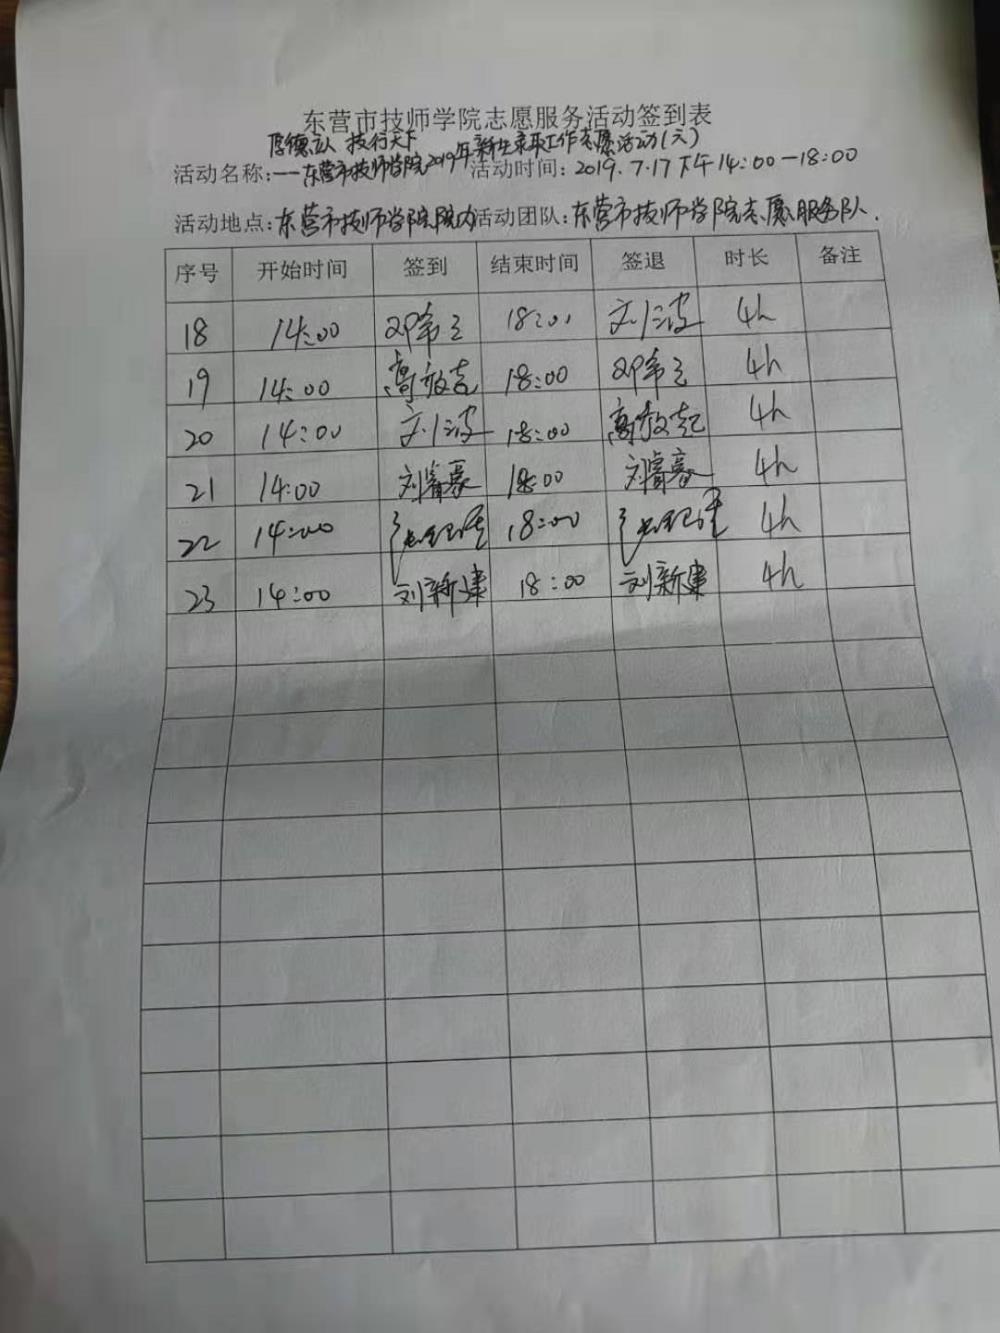 东营市技师学院志愿服务活动签到表
厚德立人 技行天下
活动名称:——东营市技师学院2019年新生录取工作志愿活动(六) 活动时间:2019.7.17下午14:00-18:00
活动地点:东营市技师学院院内 活动团队:东营市技师学院志愿服务队.
序号 开始时间 签到 结束时间 签退 时长 备注
18 14:00 18:01 刘波 4h
19 14:00 高敬起 18:00 4h
20 14:00 刘波 18:00 高敬起 4h
21 14:00 刘睿豪 18:00 刘睿豪 4h
22 14:00 18:00 4h
23 14:00 刘新建 18:00 刘新建 4h